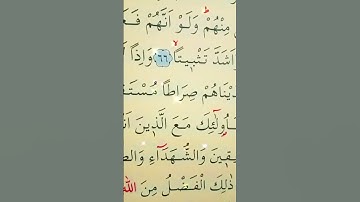 مِنْهُمْ وَلَوْ اَنَّهُمْ فَعَ
اَشَدَّ تَثْب۪يتًاۙ ﴿٦٦﴾ وَاِذًا لَ
دَيْنَاهُمْ صِرَاطًا مُسْتَق
فَاُو۬لٰٓئِكَ مَعَ الَّذ۪ينَ اَنْ
يق۪ينَ وَالشُّهَدَٓاءِ وَالص
ذٰلِكَ الْفَضْلُ مِنَ اللّٰهِ